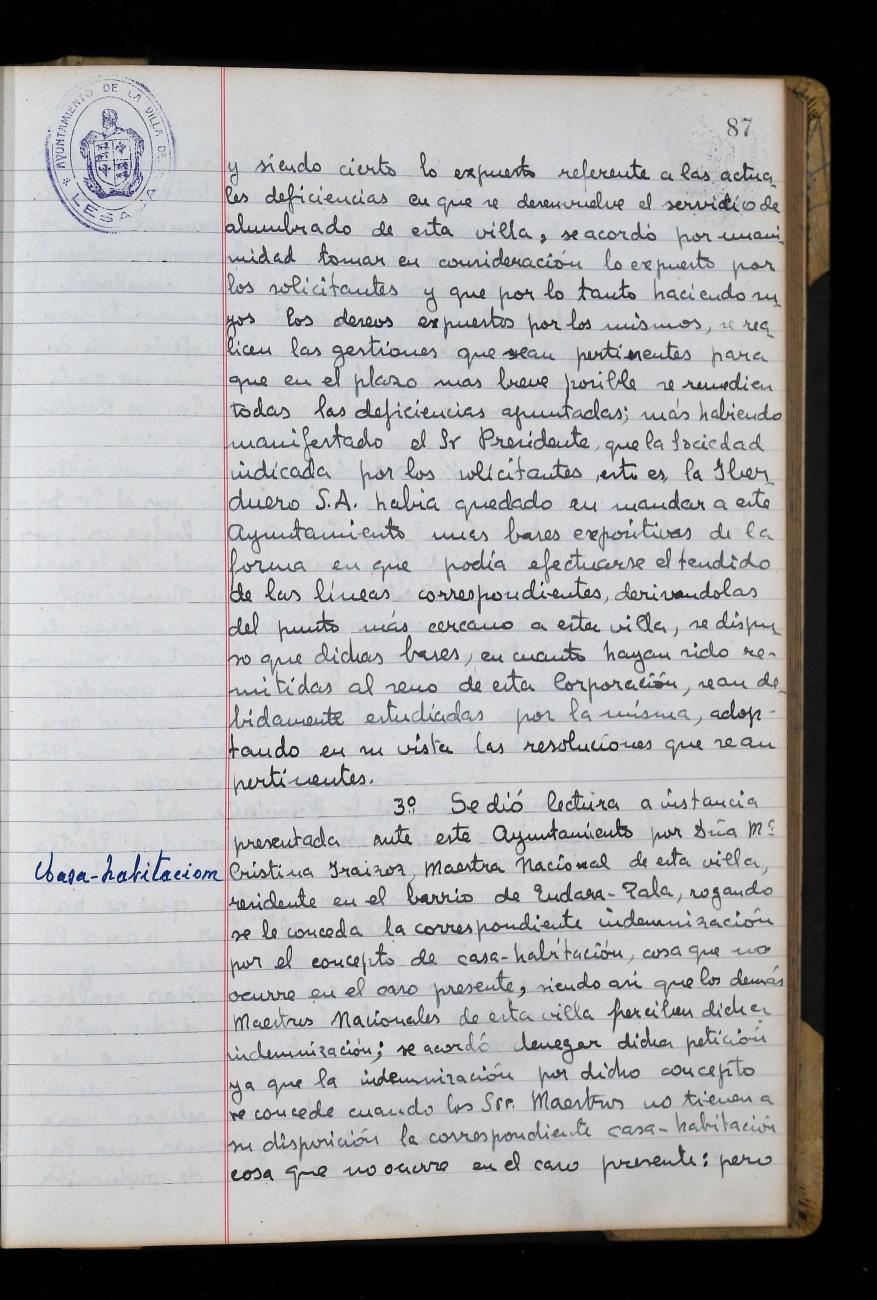 AYUNTAMIENTO DE LA VILLA DE
LESACA
87
y siendo cierto lo expuesto referente a las actua
les deficiencias en que se desenvuelve el servicio de
alumbrado de esta villa, se acordó por unani
midad tomar en consideración lo expuesto por
los solicitantes y que por lo tanto haciendo su
yos los deseos expuestos por los mismos, se rea
licen las gestiones que sean pertinentes para
que en el plazo mas breve posible se remedien
todas las deficiencias apuntadas; más habiendo
manifestado el Sr Presidente, que la Sociedad
indicada por los solicitantes, esto es, la Iber
duero S.A. habia quedado en mandar a este
Ayuntamiento unas bases expositivas de la
forma en que podía efectuarse el tendido
de las líneas correspondientes, derivandolas
del punto más cercano a esta villa, se dispu
so que dichas bases, en cuanto hayan sido re-
mitidas al seno de esta Corporación, sean de
bidamente estudiadas por la misma, adop-
tando en su vista las resoluciones que sean
pertinentes.
3º Se dió lectura a instancia
presentada ante este Ayuntamiento por Dña Mª
Casa-habitacion
Cristina Iraizoz, Maestra Nacional de esta villa,
residente en el barrio de Endara-Zala, rogando
se le conceda la correspondiente indemnización
por el concepto de casa-habitación, cosa que no
ocurre en el caso presente, siendo asi que los demás
Maestros Nacionales de esta villa perciben dicha
indemnización; se acordó denegar dicha petición
ya que la indemnización por dicho concepto
se concede cuando los Srs. Maestros no tienen a
su disposición la correspondiente casa-habitación
cosa que no ocurre en el caso presente: pero